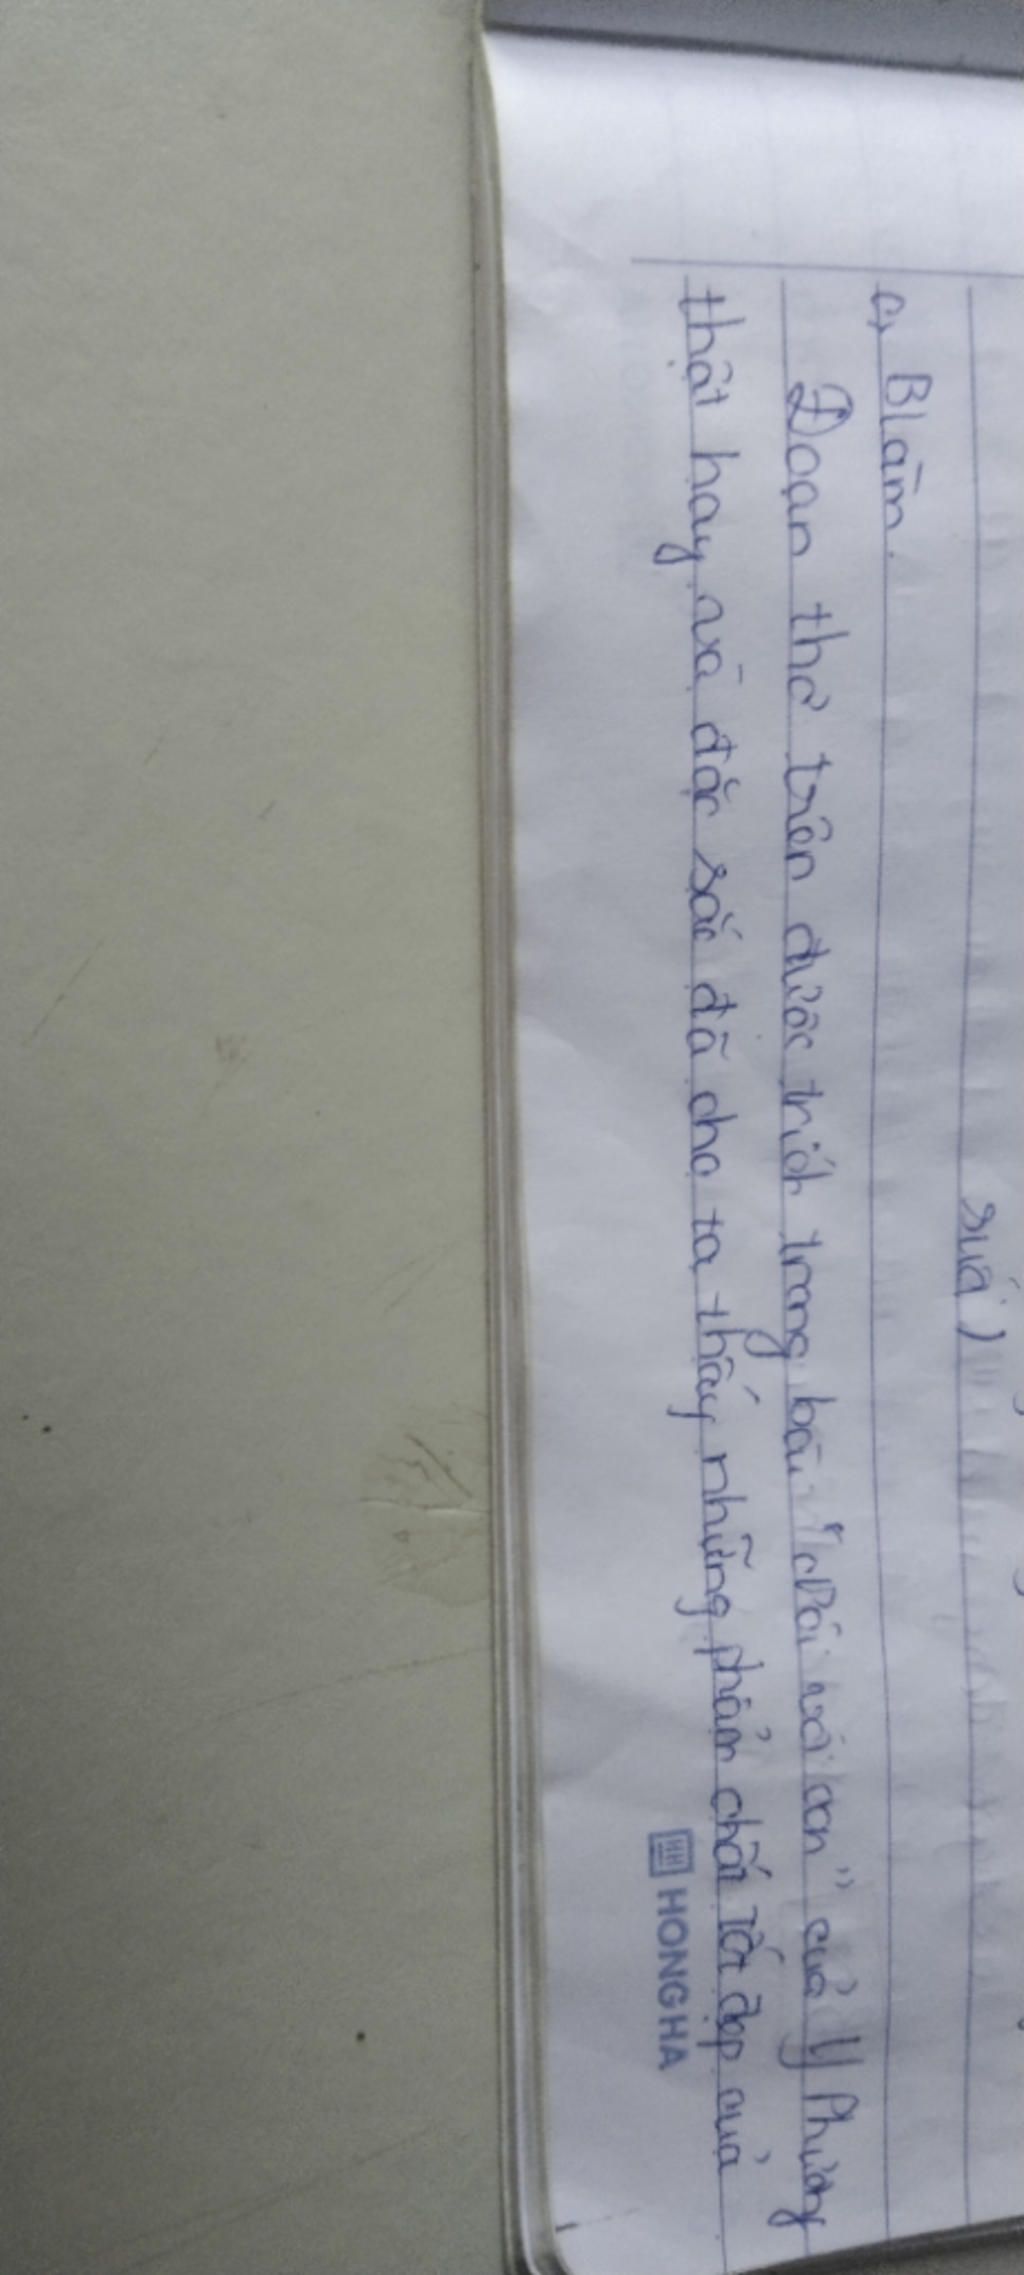 suối)
c, Blàm.
Đoạn thơ trên được trích trong bài "Nói với con" của Y Phương
thật hay và đặc sắc đã cho ta thấy những phẩm chất tốt đẹp của
HH HONG HA